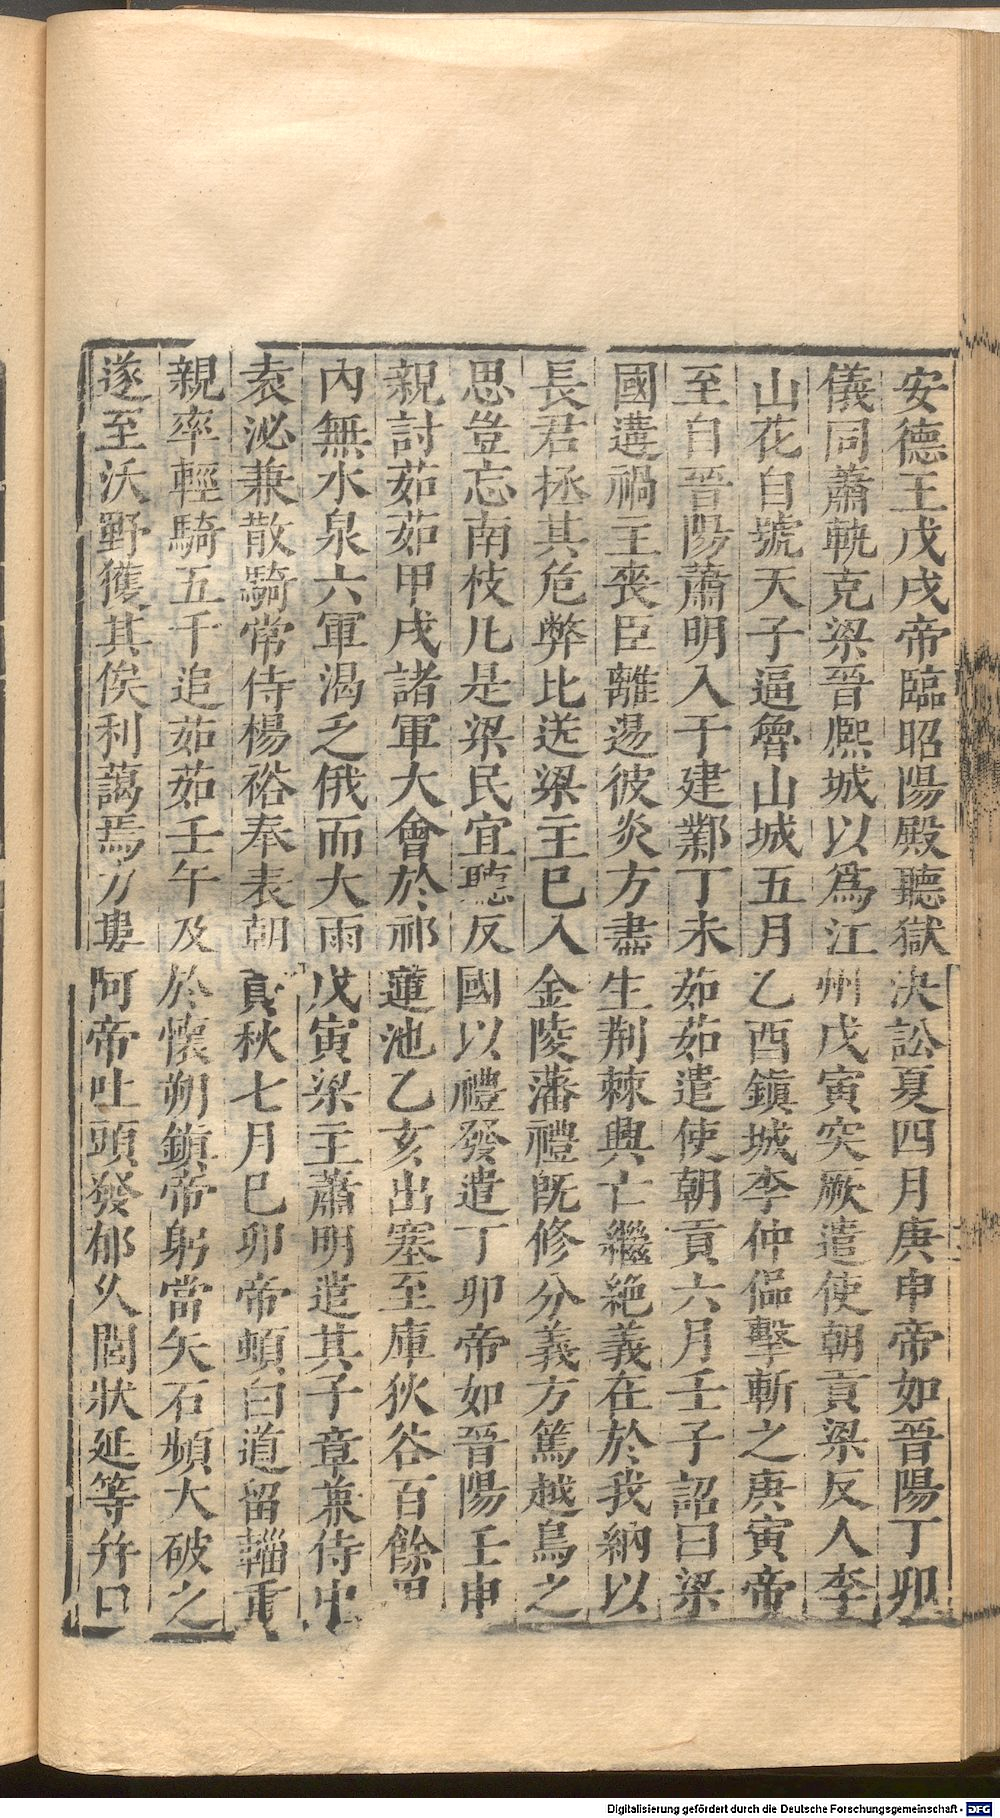 安德王戊戌帝臨昭陽殿聽獄決訟夏四月庚申帝如晉陽丁卯
儀同蕭軌克梁晉熙城以爲江州戊寅突厥遣使朝貢梁反人李
山花自號天子逼魯山城五月乙酉鎮城李仲偘擊斬之庚寅帝
至自晉陽蕭明入于建鄴丁未茹茹遣使朝貢六月壬子詔曰梁
國遘禍主喪臣離逷彼炎方盡生荆棘興亡繼絶義在於我納以
長君拯其危弊比送梁主已入金陵藩禮旣修分義方篤越鳥之
思豈忘南枝凡是梁民宜聽反國以禮發遣丁卯帝如晉陽壬申
親討茹茹甲戌諸軍大會於祁蓮池乙亥出塞至庫狄谷百餘里
內無水泉六軍渴乏俄而大雨戊寅梁主蕭明遣其子章兼侍中
袁泌兼散騎常侍楊裕奉表朝貢秋七月己卯帝頓白道留輜重
親率輕騎五千追茹茹壬午及於懷朔鎮帝躬當矢石頻大破之
遂至沃野獲其俟利藹焉力婁阿帝吐頭發郁久閭狀延等并口
Digitalisierung gefördert durch die Deutsche Forschungsgemeinschaft - DFG